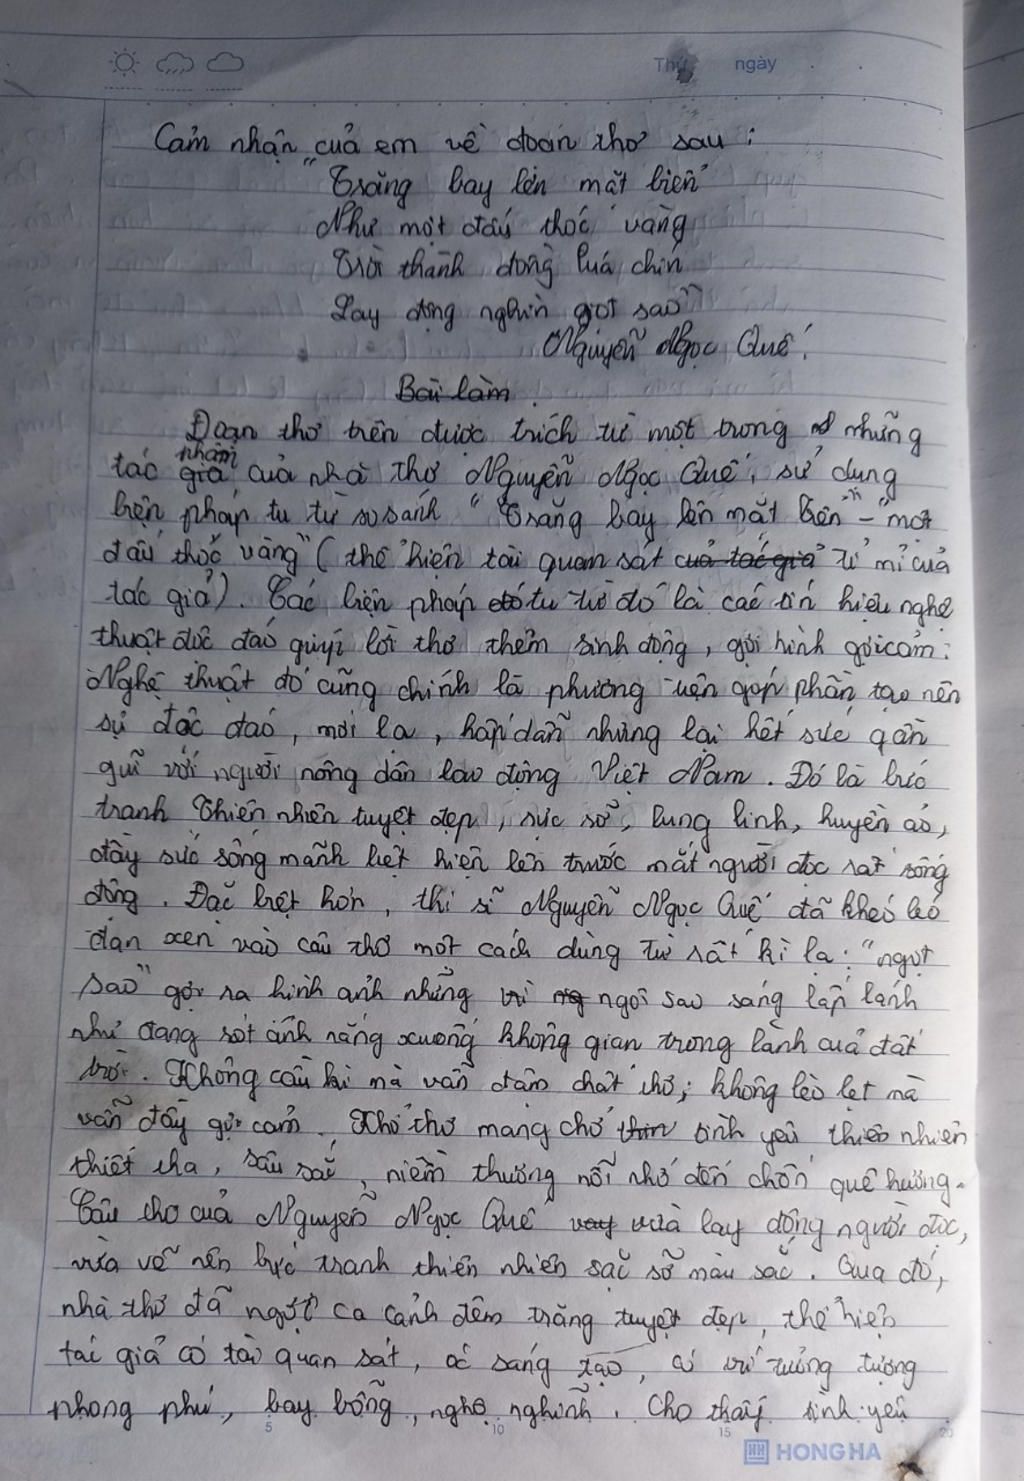 Thứ ngày
Cảm nhận của em về đoạn thơ sau :
"Trăng bay lên mặt biển
Như một đấu thóc vàng
Trời thành đồng lúa chín
Lay động nghìn giọt sao"
Nguyễn Ngọc Quế.
Bài làm
Đoạn thơ trên được trích từ một trong những
phẩm
tác giả của nhà thơ Nguyễn Ngọc Quế, sử dụng
biện pháp tu từ so sánh "Trăng bay lên mặt biển" - "một
đấu thóc vàng" (thể hiện tài quan sát của tác giả tỉ mỉ của
tác giả). Các biện pháp đó tu từ đó là các tín hiệu nghệ
thuật độc đáo giúp lời thơ thêm sinh động, gợi hình gợi cảm.
Nghệ thuật đó cũng chính là phương tiện góp phần tạo nên
sự độc đáo, mới lạ, hấp dẫn nhưng lại hết sức gần
gũi với người nông dân lao động Việt Nam. Đó là bức
tranh thiên nhiên tuyệt đẹp, rực rỡ, lung linh, huyền ảo,
đầy sức sống mãnh liệt hiện lên trước mắt người đọc rất sống
động. Đặc biệt hơn, thi sĩ Nguyễn Ngọc Quế đã khéo léo
đan xen vào câu thơ một cách dùng từ rất kì lạ: "ngọt
sao" gợi ra hình ảnh những vì ngôi sao sáng lấp lánh
như đang rót ánh nắng xuống không gian trong lành của đất
trời. Không cầu kì mà vẫn đậm chất thơ; không lèo lẹt mà
vẫn đầy gợi cảm. Khổ thơ mang chở tình yêu thiên nhiên
thiết tha, sâu sắc, niềm thương nỗi nhớ đến chốn quê hương.
Câu thơ của Nguyễn Ngọc Quế vừa lay động người đọc,
vừa vẽ nên bức tranh thiên nhiên sặc sỡ màu sắc. Qua đó,
nhà thơ đã ngợi ca cảnh đêm trăng tuyệt đẹp, thể hiện
tác giả có tài quan sát, óc sáng tạo, có trí tưởng tượng
phong phú, bay bổng, ngộ nghĩnh. Cho thấy tình yêu
5 10 15 20
HH HONG HA